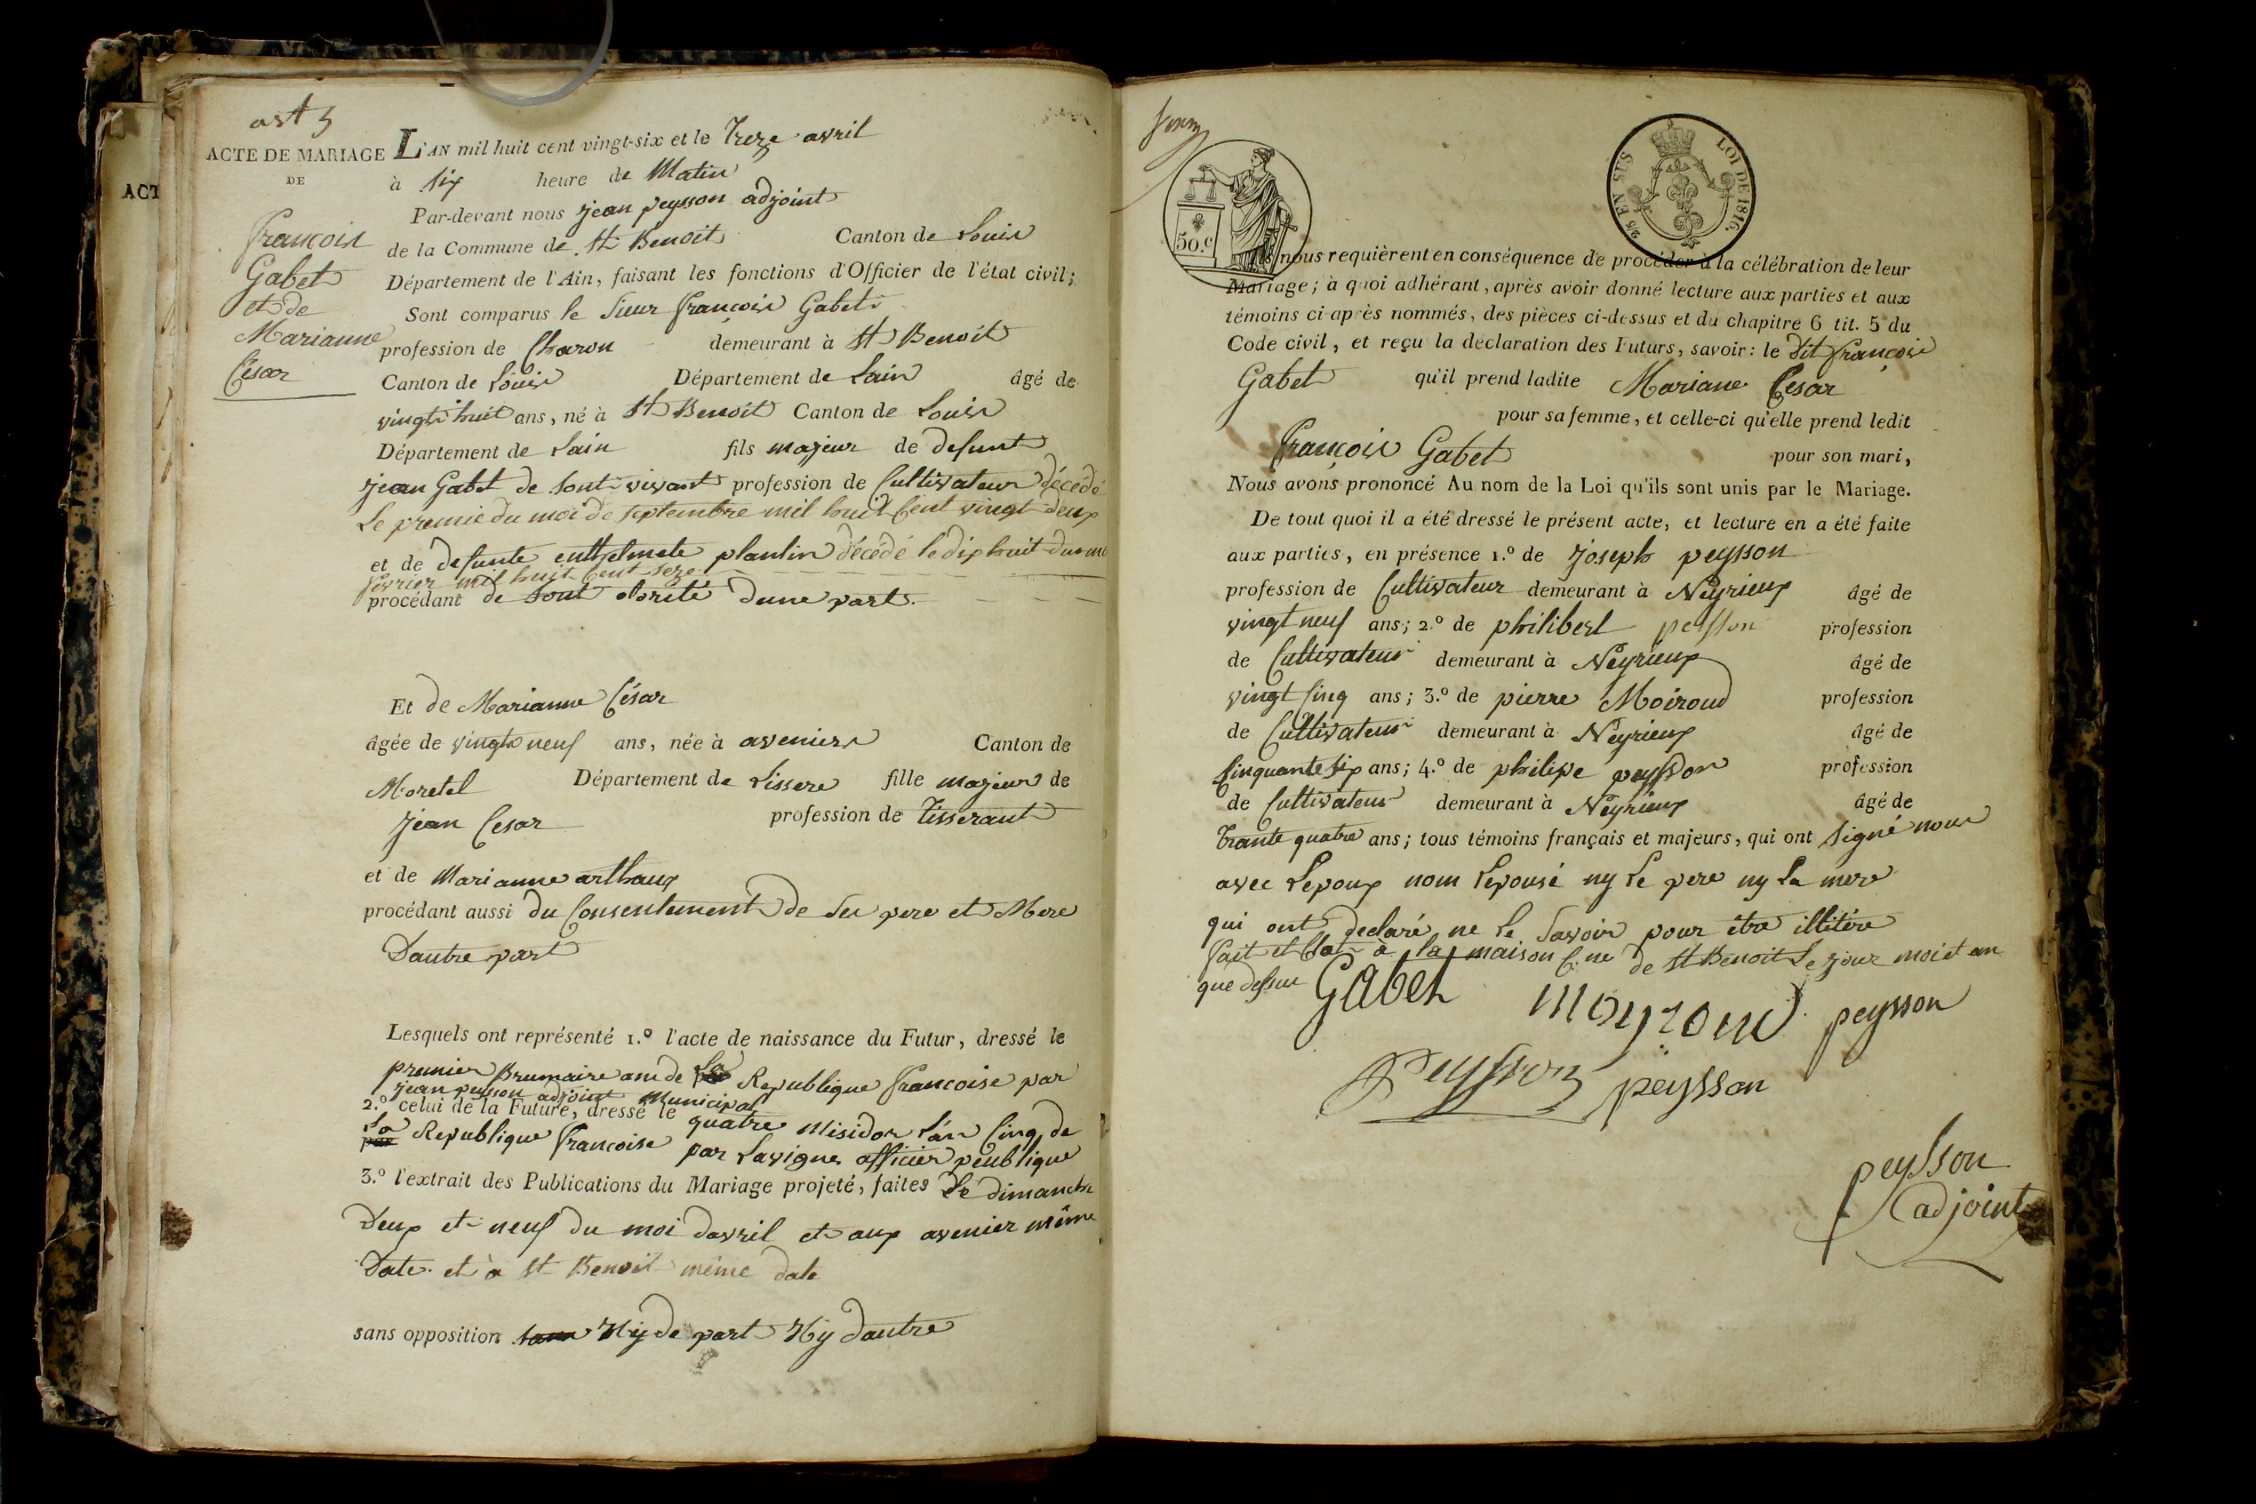 art 3
ACTE DE MARIAGE
DE
François
Gabet
et de
Marianne
César
ACT
L'AN mil huit cent vingt-six et le Treze avril
à six heure de Matin
Par-devant nous jean peysson adjoint
de la Commune de St Benoit Canton de Louis
Département de l'Ain, faisant les fonctions d'Officier de l'état civil;
Sont comparus le sieur françois Gabet
profession de Charon demeurant à St Benoit
Canton de Louis Département de Lain âgé de
vingt huit ans, né à St Benoit Canton de Louis
Département de Lain fils majeur de defunt
jean Gabet de sont vivant profession de Cultivateur décédé
Le premie du moi de septembre mil huit Cent vingt deux
et de defunte enthelmete plantin décédé le dix huit du moi
fevrier mil huit Cent seze
procédant de sont otorité dune part.
Et de Marianne César
âgée de vingt neuf ans, née à aveniers Canton de
Moretel Département de Lissere fille majeur de
jean Cesar profession de Tisserant
et de Marianne arthaux
procédant aussi du Consentement de Ses pere et Mere
Dautre part
Lesquels ont représenté 1.º l'acte de naissance du Futur, dressé le
premier Brumaire an de La Republique francoise par
jean peysson adjoint Municipal
2.º celui de la Future, dressé le quatre Misidor Lan Cinq de
La Republique francoise par Lavigne officier peublique
3.º l'extrait des Publications du Mariage projeté, faites Le dimanche
Deux et neuf du moi davril et aux avenier même
Date et à St Benoit même date
sans opposition Ny de part Ny dautre
50.c
25 EN SUS LOI DE 1816.
Ils nous requièrent en conséquence de procéder à la célébration de leur
Mariage; à quoi adhérant, après avoir donné lecture aux parties et aux
témoins ci-après nommés, des pièces ci-dessus et du chapitre 6 tit. 5 du
Code civil, et reçu la déclaration des Futurs, savoir: le dit françois
Gabet qu'il prend ladite Mariane Cesar
pour sa femme, et celle-ci qu'elle prend ledit
françois Gabet pour son mari,
Nous avons prononcé Au nom de la Loi qu'ils sont unis par le Mariage.
De tout quoi il a été dressé le présent acte, et lecture en a été faite
aux parties, en présence 1.º de joseph peysson
profession de Cultivateur demeurant à Neyrieux âgé de
vingt neuf ans; 2.º de philibert peysson profession
de Cultivateur demeurant à Neyrieux âgé de
vingt Cinq ans; 3.º de pierre Moiroud profession
de Cultivateur demeurant à Neyrieux âgé de
Cinquante six ans; 4.º de philipe peysson profession
de Cultivateur demeurant à Neyrieux âgé de
Trante quatre ans; tous témoins français et majeurs, qui ont signé nous
avec Lepoux nom Lepouse ny Le pere ny La mere
qui ont declaré ne Le Savoir pour être illitére
fait et Clot à la maison C.ne de St Benoit Le jour moi et an
que dessus Gabet moyroud peysson
Peysson peysson
peysson
adjoint